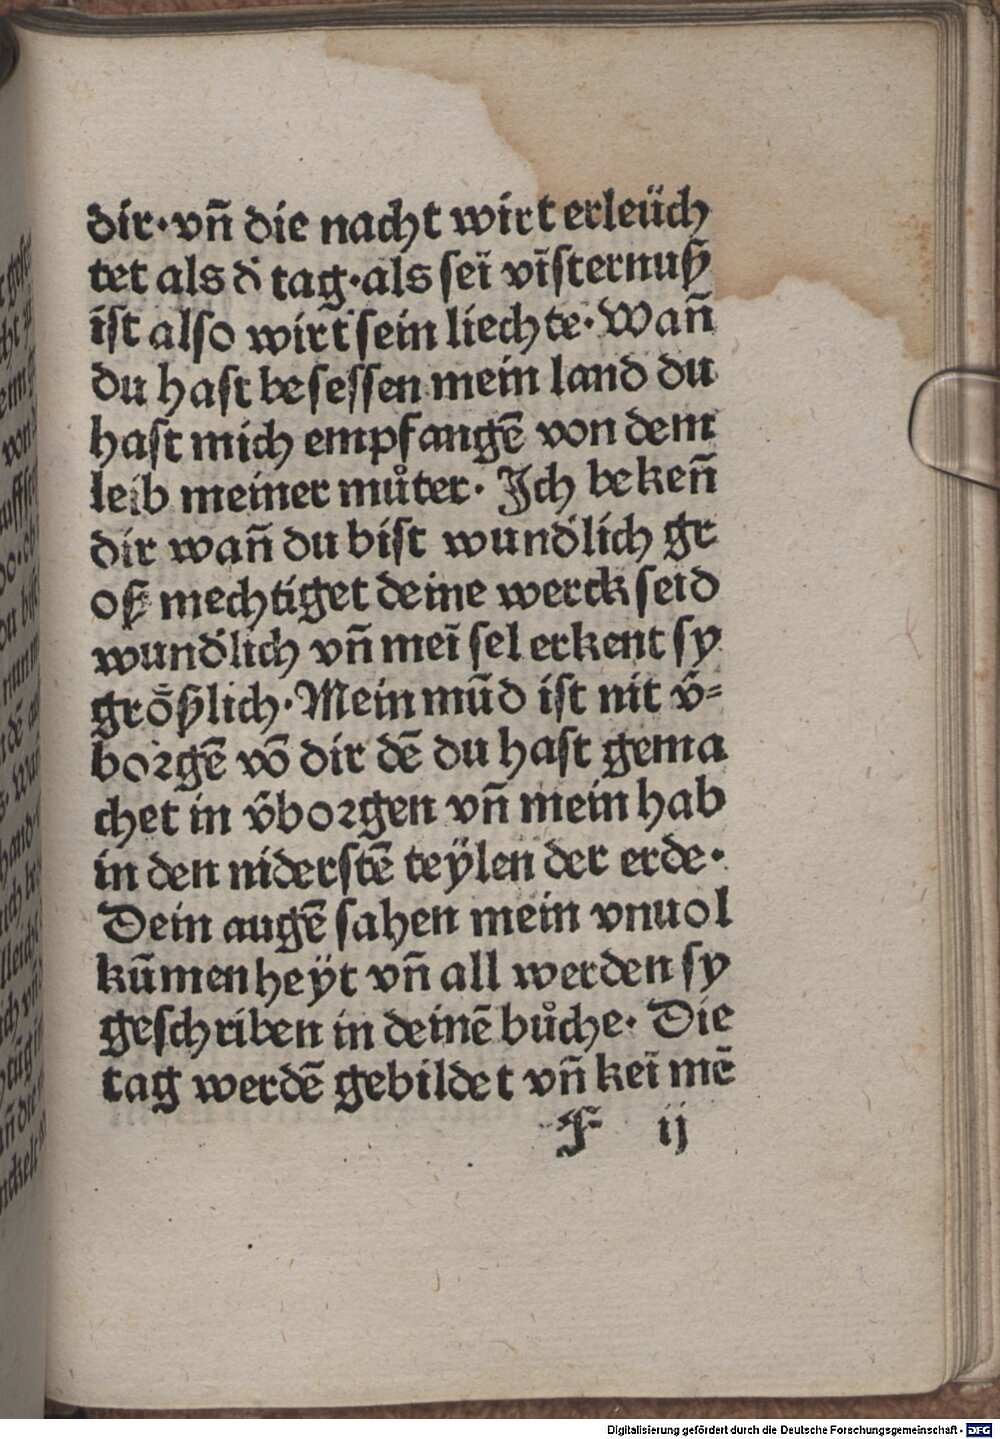 dir·vñ die nacht wirt erleüch
tet als d̾ tag·als sei̅ vi̅sternuß
ist also wirt sein liechte·Wañ
du hast besessen mein land du
hast mich empfange̅ von dem
leib meiner můter· Ich bekeñ
dir wañ du bist wund̾lich gr
oß mechtiget deine werck seid
wund̾lich vñ mei̅ sel erkent sy
größlich·Mein mu̅d ist nit v̾-
borge̅ vo̅ dir de̅ du hast gema
chet in v̾borgen vñ mein hab
in den niderste̅ teÿlen der erde·
Dein auge̅ sahen mein vnuol
ku̅menheÿt vñ all werden sy
geschriben in deine̅ bůche· Die
tag werde̅ gebildet vñ kei̅ me̅
F ij
Digitalisierung gefördert durch die Deutsche Forschungsgemeinschaft - DFG